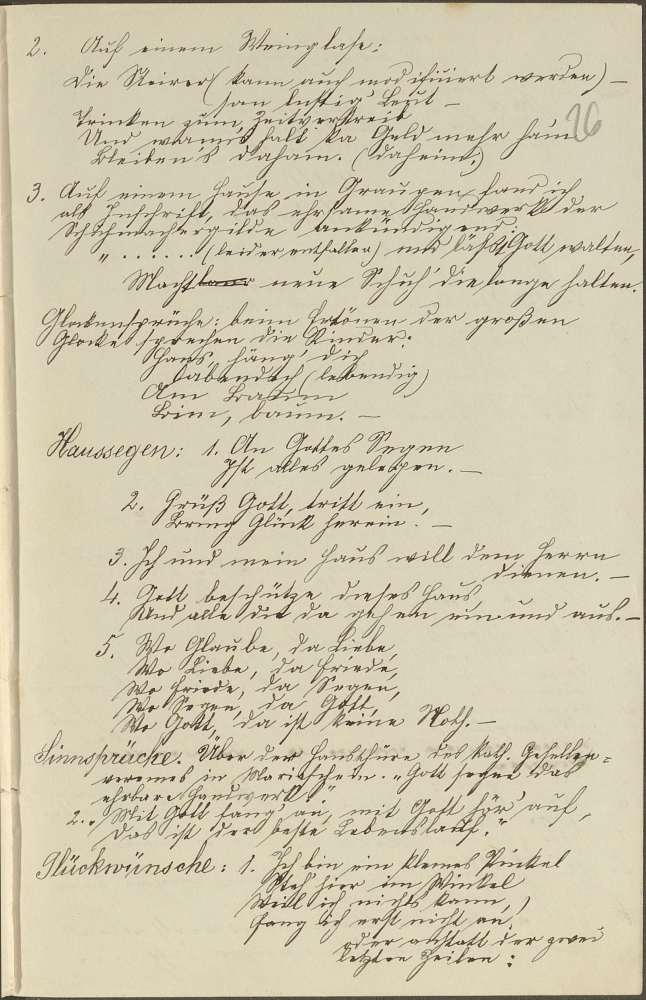 2. Auf einem Weinglase:
Die Steirer (kann auch modifiziert werden) –
san lustig' Leut –
Trinken zum Zeitvertreib
Und wann's halt ka Geld mehr ham 26
Bleiben's daham. (daheim.)
3. Auf einem Hause in Graupen fand ich
als Inschrift, das ehrsame Handwerk der
Schuhmachergilde ankündigend:
"...... (leider entfallen) und läßt Gott walten,
Macht neue Schuh' die lange halten.
Glockensprüche: beim Ertönen der großen
Glocke sprechen die Kinder:
Hans, häng' dich
labendich (lebendig)
Am Baum
Bim, baum. –
Haussegen: 1. An Gottes Segen
Ist alles gelegen. –
2. Grüß Gott, tritt ein,
Bring Glück herein. –
3. Ich und mein Haus will dem Herrn
dienen. –
4. Gott beschütze dieses Haus
Und alle die da gehen ein und aus. –
5. Wo Glaube, da Liebe,
Wo Liebe, da Friede,
Wo Friede, da Segen,
Wo Segen, da Gott,
Wo Gott, da ist keine Noth. –
Sinnsprüche. Über der Hausthüre des kath. Gesellen-
vereines in Mariaschein. "Gott segne das
ehrbare Handwerk!"
2. "Mit Gott fang' an, mit Gott hör' auf,
das ist der beste Lebenslauf."
Glückwünsche: 1. Ich bin ein kleines Pinkel
Steh' hier im Winkel
Weil ich nichts kann,
Fang ich erst nicht an,
oder anstatt der zwei
letzten Zeilen: